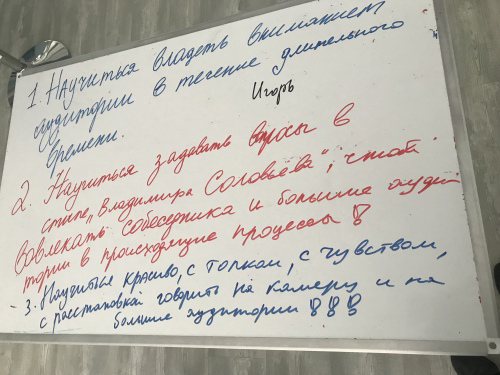 1. Научиться владеть вниманием
аудитории в течение длительного
времени.
Игорь
2. Научиться задавать впросы в
стиле „Владимира Соловьёва", чтоб
вовлекать собеседника и большие ауди
тории в происходящие процессы !
- 3. Научиться красиво, с толком, с чувством,
с расстановкой говорить на камеру и на
большие аудитории !!!